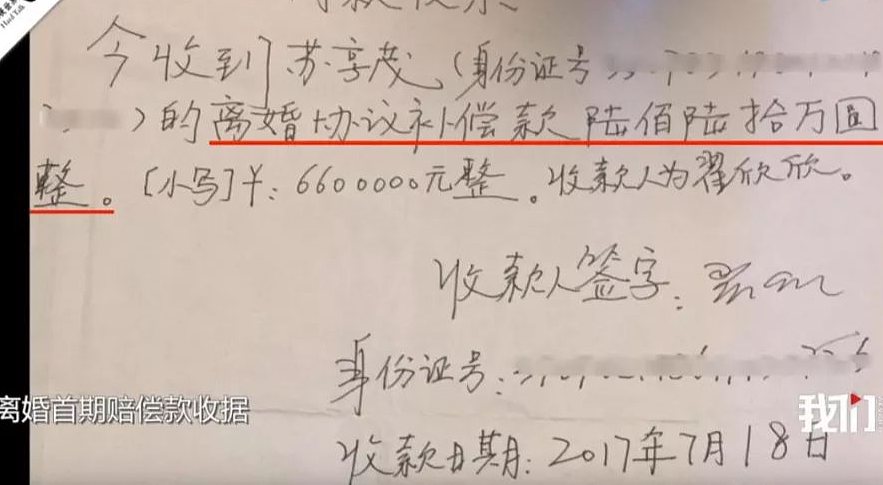 今收到苏享茂（身份证号
）的离婚协议补偿款陆佰陆拾万圆
整。[小写]￥：6600000元整。收款人为翟欣欣。
收款人签字：
身份证号：
离婚首期赔偿款收据
我们
收款日期：2017年7月18日